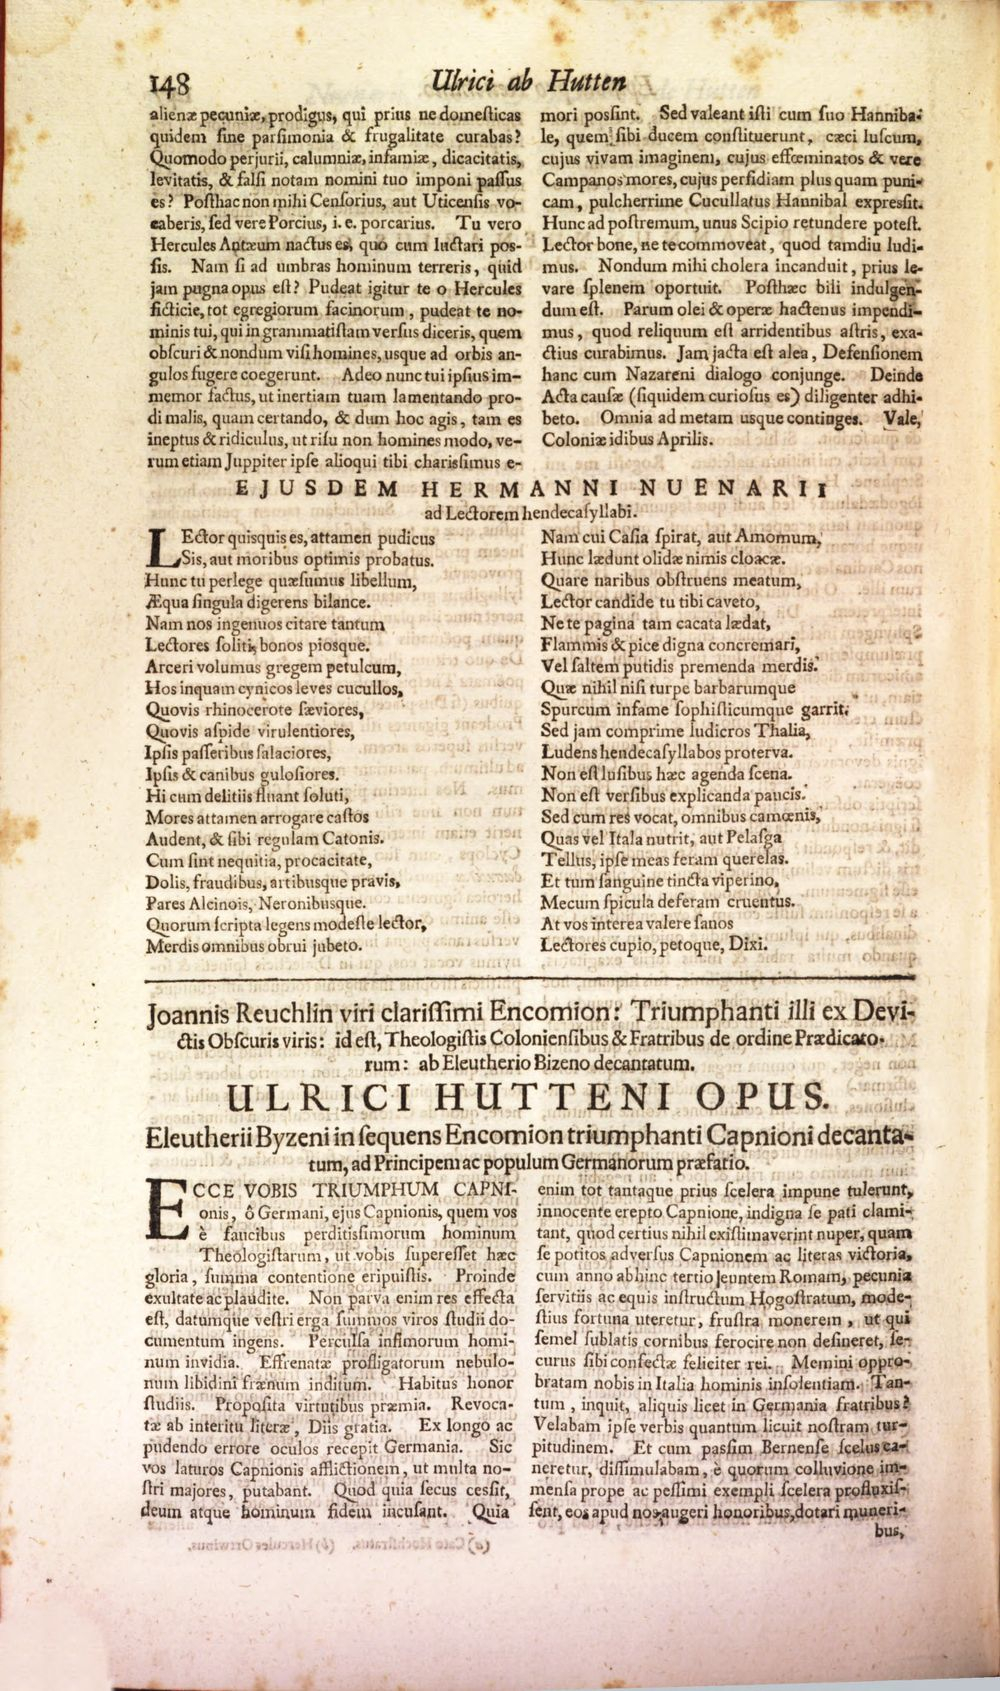 148
Ulrici ab Hutten
alienæ pecuniæ, prodigus, qui prius ne domeſticas
quidem ſine parſimonia & frugalitate curabas?
Quomodo perjurii, calumniæ, infamiæ, dicacitatis,
levitatis, & falſi notam nomini tuo imponi paſſus
es? Poſthac non mihi Cenſorius, aut Uticenſis vo-
caberis, ſed vere Porcius, i. e. porcarius. Tu vero
Hercules Antæum nactus es, quo cum luctari poſ-
ſis. Nam ſi ad umbras hominum terreris, quid
jam pugna opus eſt? Pudeat igitur te o Hercules
ficticie, tot egregiorum facinorum, pudeat te no-
minis tui, qui in grammatiſtam verſus diceris, quem
obſcuri & nondum viſi homines, usque ad orbis an-
gulos fugere coegerunt. Adeo nunc tui ipſius im-
memor factus, ut inertiam tuam lamentando pro-
di malis, quam certando, & dum hoc agis, tam es
ineptus & ridiculus, ut riſu non homines modo, ve-
rum etiam Juppiter ipſe alioqui tibi chariſſimus e-
mori poſſint. Sed valeant iſti cum ſuo Hanniba-
le, quem ſibi ducem conſtituerunt, cæci luſcum,
cujus vivam imaginem, cujus effœminatos & vere
Campanos mores, cujus perfidiam plus quam puni-
cam, pulcherrime Cucullatus Hannibal expreſſit.
Hunc ad poſtremum, unus Scipio retundere poteſt.
Lector bone, ne te commoveat, quod tamdiu ludi-
mus. Nondum mihi cholera incanduit, prius le-
vare ſplenem oportuit. Poſthæc bili indulgen-
dum eſt. Parum olei & operæ hactenus impendi-
mus, quod reliquum eſt arridentibus aſtris, exa-
ctius curabimus. Jam jacta eſt alea, Defenſionem
hanc cum Nazareni dialogo conjunge. Deinde
Acta cauſæ (ſiquidem curioſus es) diligenter adhi-
beto. Omnia ad metam usque continges. Vale,
Coloniæ idibus Aprilis.
EJUSDEM HERMANNI NUENARII
ad Lectorem hendecaſyllabi.
LEctor quisquis es, attamen pudicus
Sis, aut moribus optimis probatus.
Hunc tu perlege quæſumus libellum,
Æqua ſingula digerens bilance.
Nam nos ingenuos citare tantum
Lectores ſoliti, bonos piosque.
Arceri volumus gregem petulcum,
Hos inquam cynicos leves cucullos,
Quovis rhinocerote ſæviores,
Quovis aſpide virulentiores,
Ipſis paſſeribus ſalaciores,
Ipſis & canibus guloſiores.
Hi cum delitiis fluant ſoluti,
Mores attamen arrogare caſtos
Audent, & ſibi regulam Catonis.
Cum ſint nequitia, procacitate,
Dolis, fraudibus, artibusque pravis,
Pares Alcinois, Neronibusque.
Quorum ſcripta legens modeſte lector,
Merdis omnibus obrui jubeto.
Nam cui Caſia ſpirat, aut Amomum,
Hunc lædunt olidæ nimis cloacæ.
Quare naribus obſtruens meatum,
Lector candide tu tibi caveto,
Ne te pagina tam cacata lædat,
Flammis & pice digna concremari,
Vel ſaltem putidis premenda merdis.
Quæ nihil niſi turpe barbarumque
Spurcum infame ſophiſticumque garrit.
Sed jam comprime ludicros Thalia,
Ludens hendecaſyllabos proterva.
Non eſt luſibus hæc agenda ſcena.
Non eſt verſibus explicanda paucis.
Sed cum res vocat, omnibus camœnis,
Quas vel Itala nutrit, aut Pelaſga
Tellus, ipſe meas feram querelas.
Et tum ſanguine tincta viperino,
Mecum ſpicula deferam cruentus.
At vos interea valere ſanos
Lectores cupio, petoque, Dixi.
Joannis Reuchlin viri clariſſimi Encomion: Triumphanti illi ex Devi-
ctis Obſcuris viris: id eſt, Theologiſtis Colonienſibus & Fratribus de ordine Prædicato-
rum: ab Eleutherio Bizeno decantatum.
ULRICI HUTTENI OPUS.
Eleutherii Byzeni in ſequens Encomion triumphanti Capnioni decanta-
tum, ad Principem ac populum Germanorum præfatio.
ECCE VOBIS TRIUMPHUM CAPNI-
onis, ô Germani, ejus Capnionis, quem vos
è faucibus perditiſſimorum hominum
Theologiſtarum, ut vobis ſupereſſet hæc
gloria, ſumma contentione eripuiſtis. Proinde
exultate ac plaudite. Non parva enim res effecta
eſt, datumque veſtri erga ſummos viros ſtudii do-
cumentum ingens. Perculſa infimorum homi-
num invidia. Effrenatæ profligatorum nebulo-
num libidini frænum inditum. Habitus honor
ſtudiis. Propoſita virtutibus præmia. Revoca-
tæ ab interitu literæ, Diis gratia. Ex longo ac
pudendo errore oculos recepit Germania. Sic
vos laturos Capnionis afflictionem, ut multa no-
ſtri majores, putabant. Quod quia ſecus ceſſit,
deum atque hominum fidem incuſant. Quia
enim tot tantaque prius ſcelera impune tulerunt,
innocente erepto Capnione, indigna ſe pati clami-
tant, quod certius nihil exiſtimaverint nuper, quam
ſe potitos adverſus Capnionem ac literas victoria,
cum anno abhinc tertio Jeuntem Romam, pecunia
ſervitiis ac equis inſtructum Hogoſtratum, mode-
ſtius fortuna uteretur, fruſtra monerem, ut qui
ſemel ſublatis cornibus ferocire non deſineret, ſe-
curus ſibi confectæ feliciter rei. Memini oppro-
bratam nobis in Italia hominis inſolentiam. Tan-
tum, inquit, aliquis licet in Germania fratribus?
Velabam ipſe verbis quantum licuit noſtram tur-
pitudinem. Et cum paſſim Bernenſe ſcelus ca-
neretur, diſſimulabam, è quorum colluvione im-
menſa prope ac peſſimi exempli ſcelera profluxiſ-
ſent, eos apud nos augeri honoribus, dotari muneri-
bus,